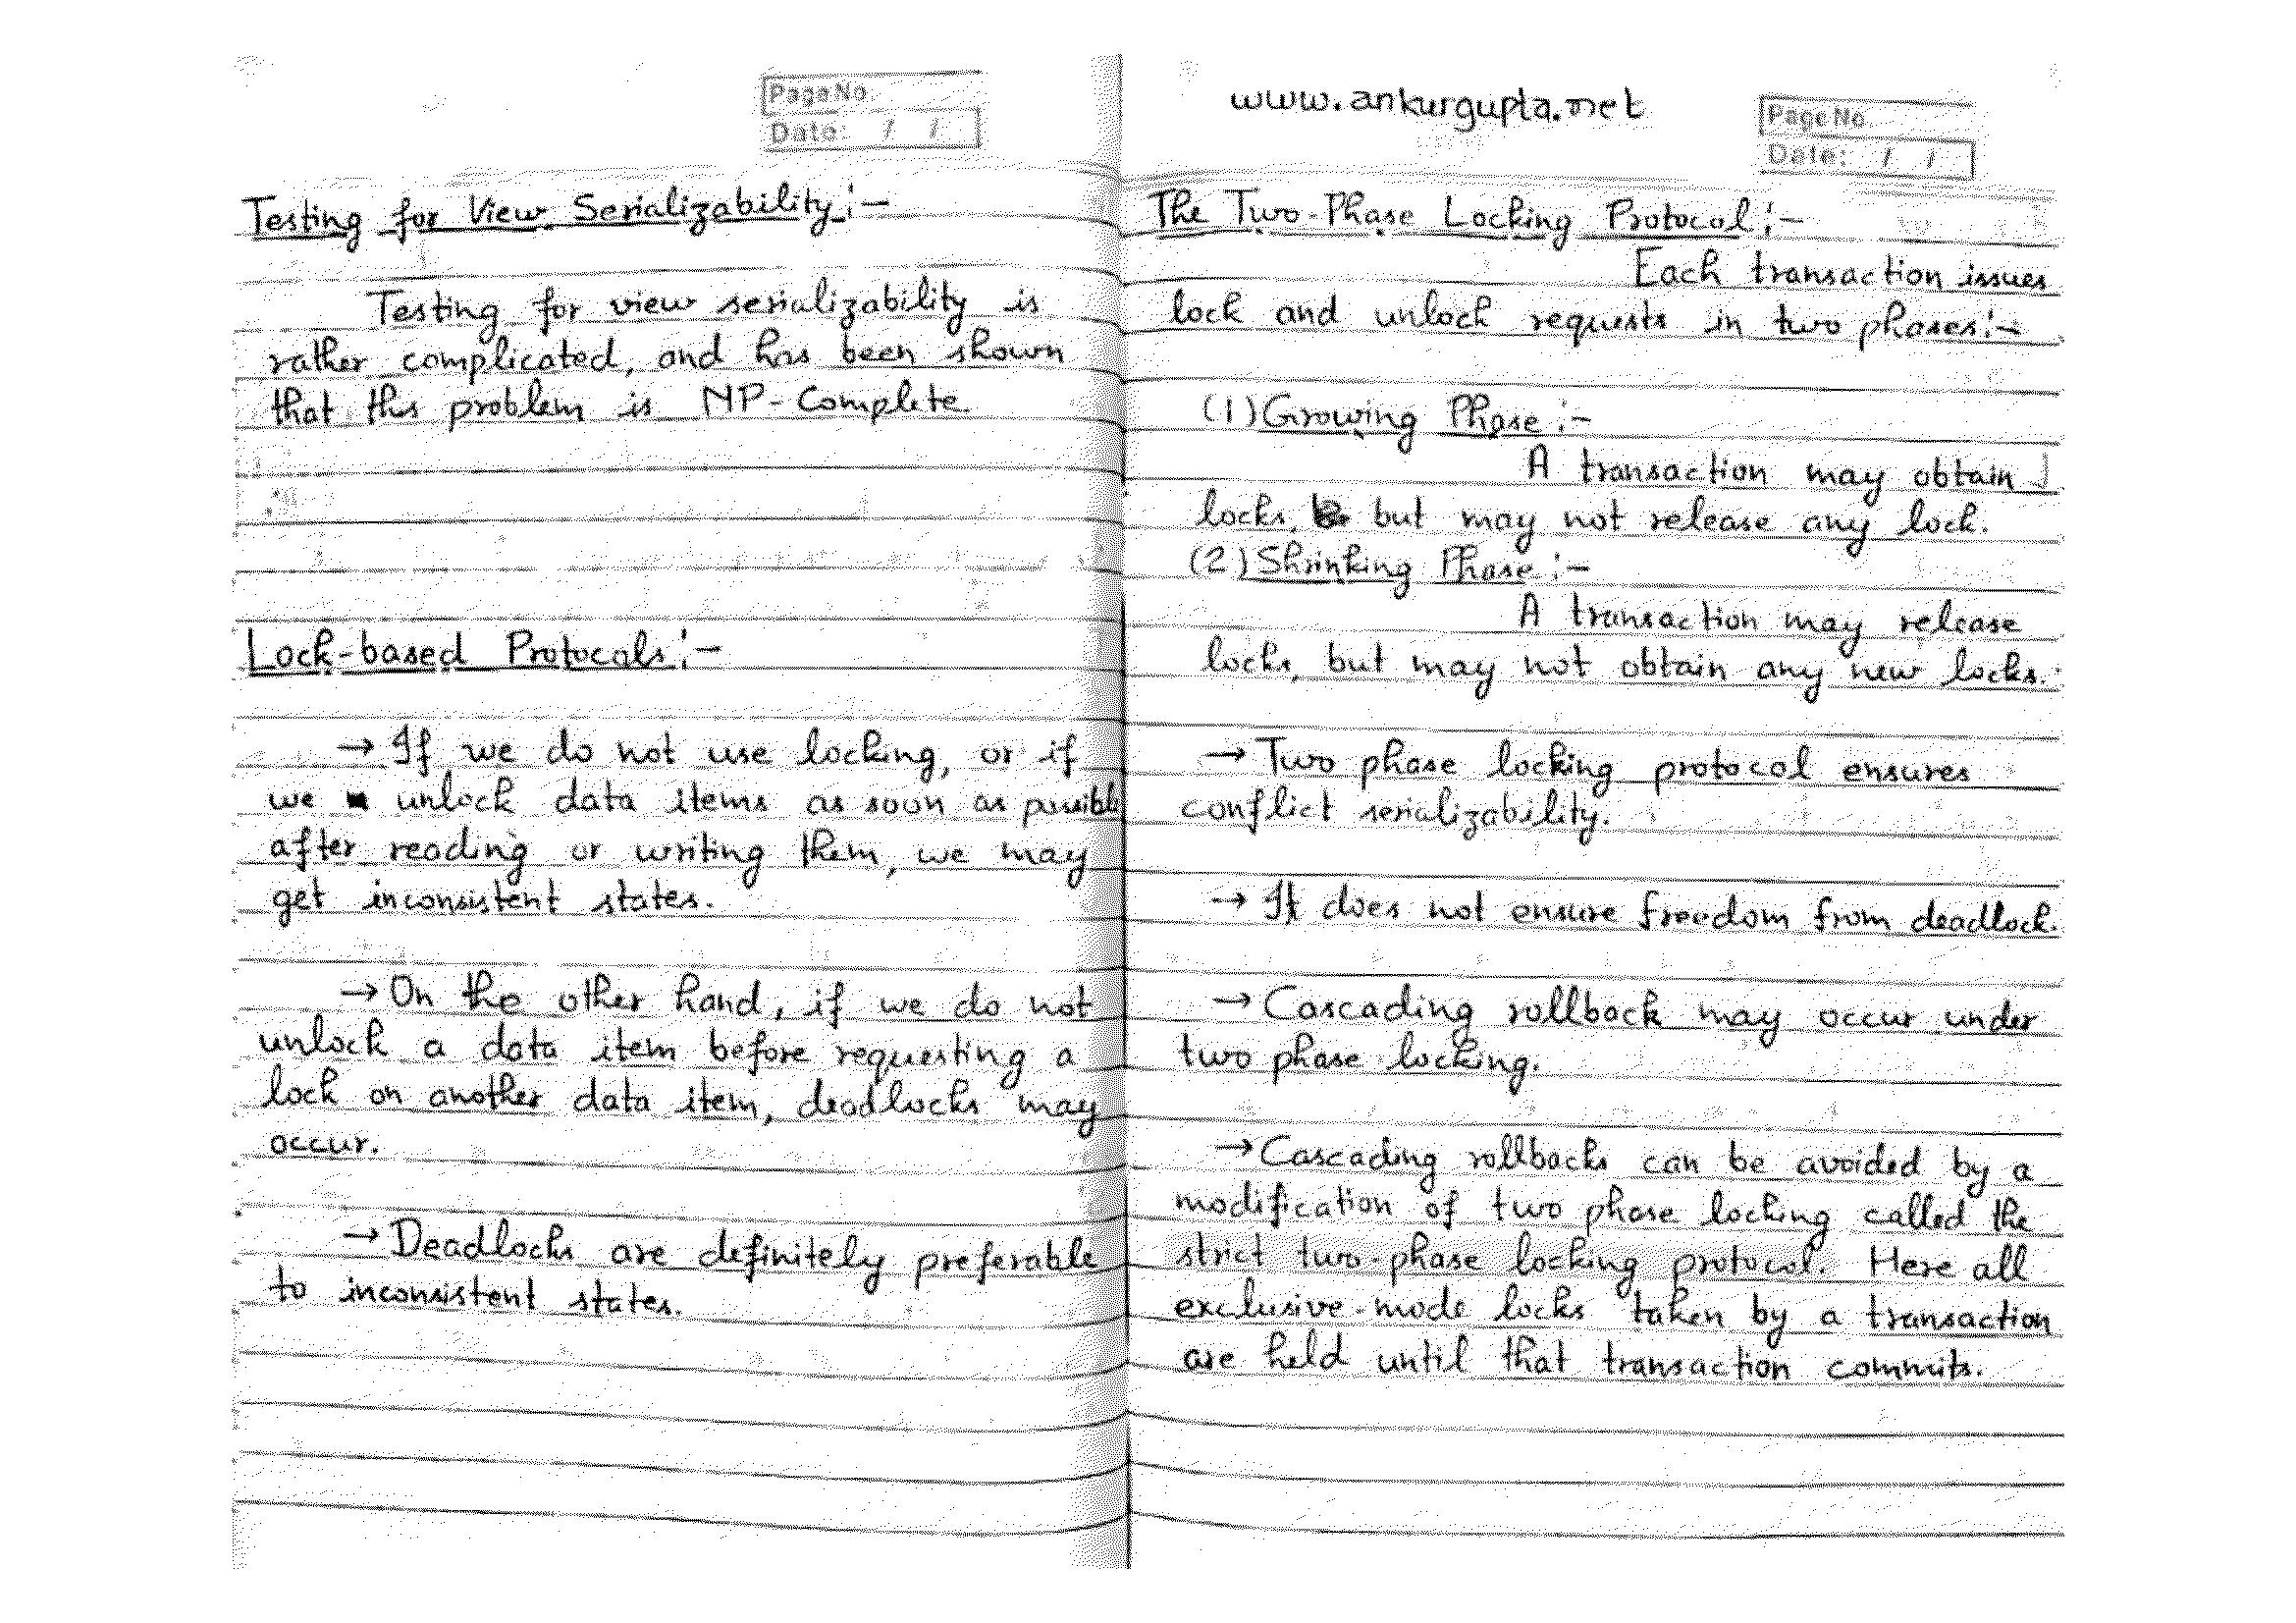 Page No.
Date: / /
Testing for View Serializability:-
Testing for view serializability is
rather complicated, and has been shown
that this problem is NP-Complete.
Lock-based Protocols:-
→ If we do not use locking, or if
we unlock data items as soon as possible
after reading or writing them, we may
get inconsistent states.
→ On the other hand, if we do not
unlock a data item before requesting a
lock on another data item, deadlocks may
occur.
→ Deadlocks are definitely preferable
to inconsistent states.
www.ankurgupta.net
Page No.
Date: / /
The Two-Phase Locking Protocol:-
Each transaction issues
lock and unlock requests in two phases:-
(1) Growing Phase:-
A transaction may obtain
locks, but may not release any lock.
(2) Shrinking Phase:-
A transaction may release
locks, but may not obtain any new locks.
→ Two phase locking protocol ensures
conflict serializability.
→ It does not ensure freedom from deadlock.
→ Cascading rollback may occur under
two phase locking.
→ Cascading rollbacks can be avoided by a
modification of two phase locking called the
strict two-phase locking protocol. Here all
exclusive-mode locks taken by a transaction
are held until that transaction commits.